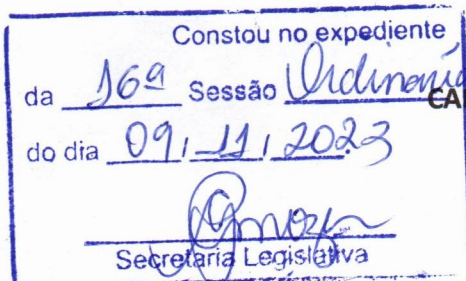 Constou no expediente
da 16ª Sessão Ordinária
CA
do dia 09, 11, 2023
Secretaria Legislativa